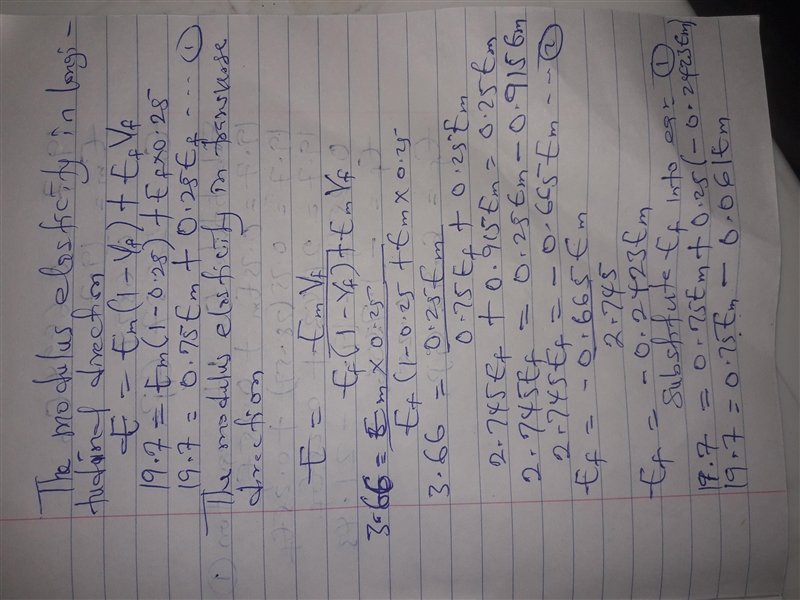 The modulus elasticity in longi-
tudinal direction
E = Em(1 - Vf) + Ef Vf
19.7 = Em(1 - 0.25) + Ef x 0.25
19.7 = 0.75Em + 0.25Ef --- (1)
The modulus elasticity in transverse
direction
E = Em Vf
Ef(1 - Vf) + Em Vf
3.66 = Em x 0.25
Ef(1 - 0.25 + Em x 0.25
3.66 = 0.25Em
0.75Ef + 0.25Em
2.745Ef + 0.915Em = 0.25Em
2.745Ef = 0.25Em - 0.915Em
2.745Ef = - 0.665Em --- (2)
Ef = - 0.665Em
2.745
Ef = - 0.2423Em
Substitute Ef into eqn (1)
19.7 = 0.75Em + 0.25(- 0.2423Em)
19.7 = 0.75Em - 0.061Em